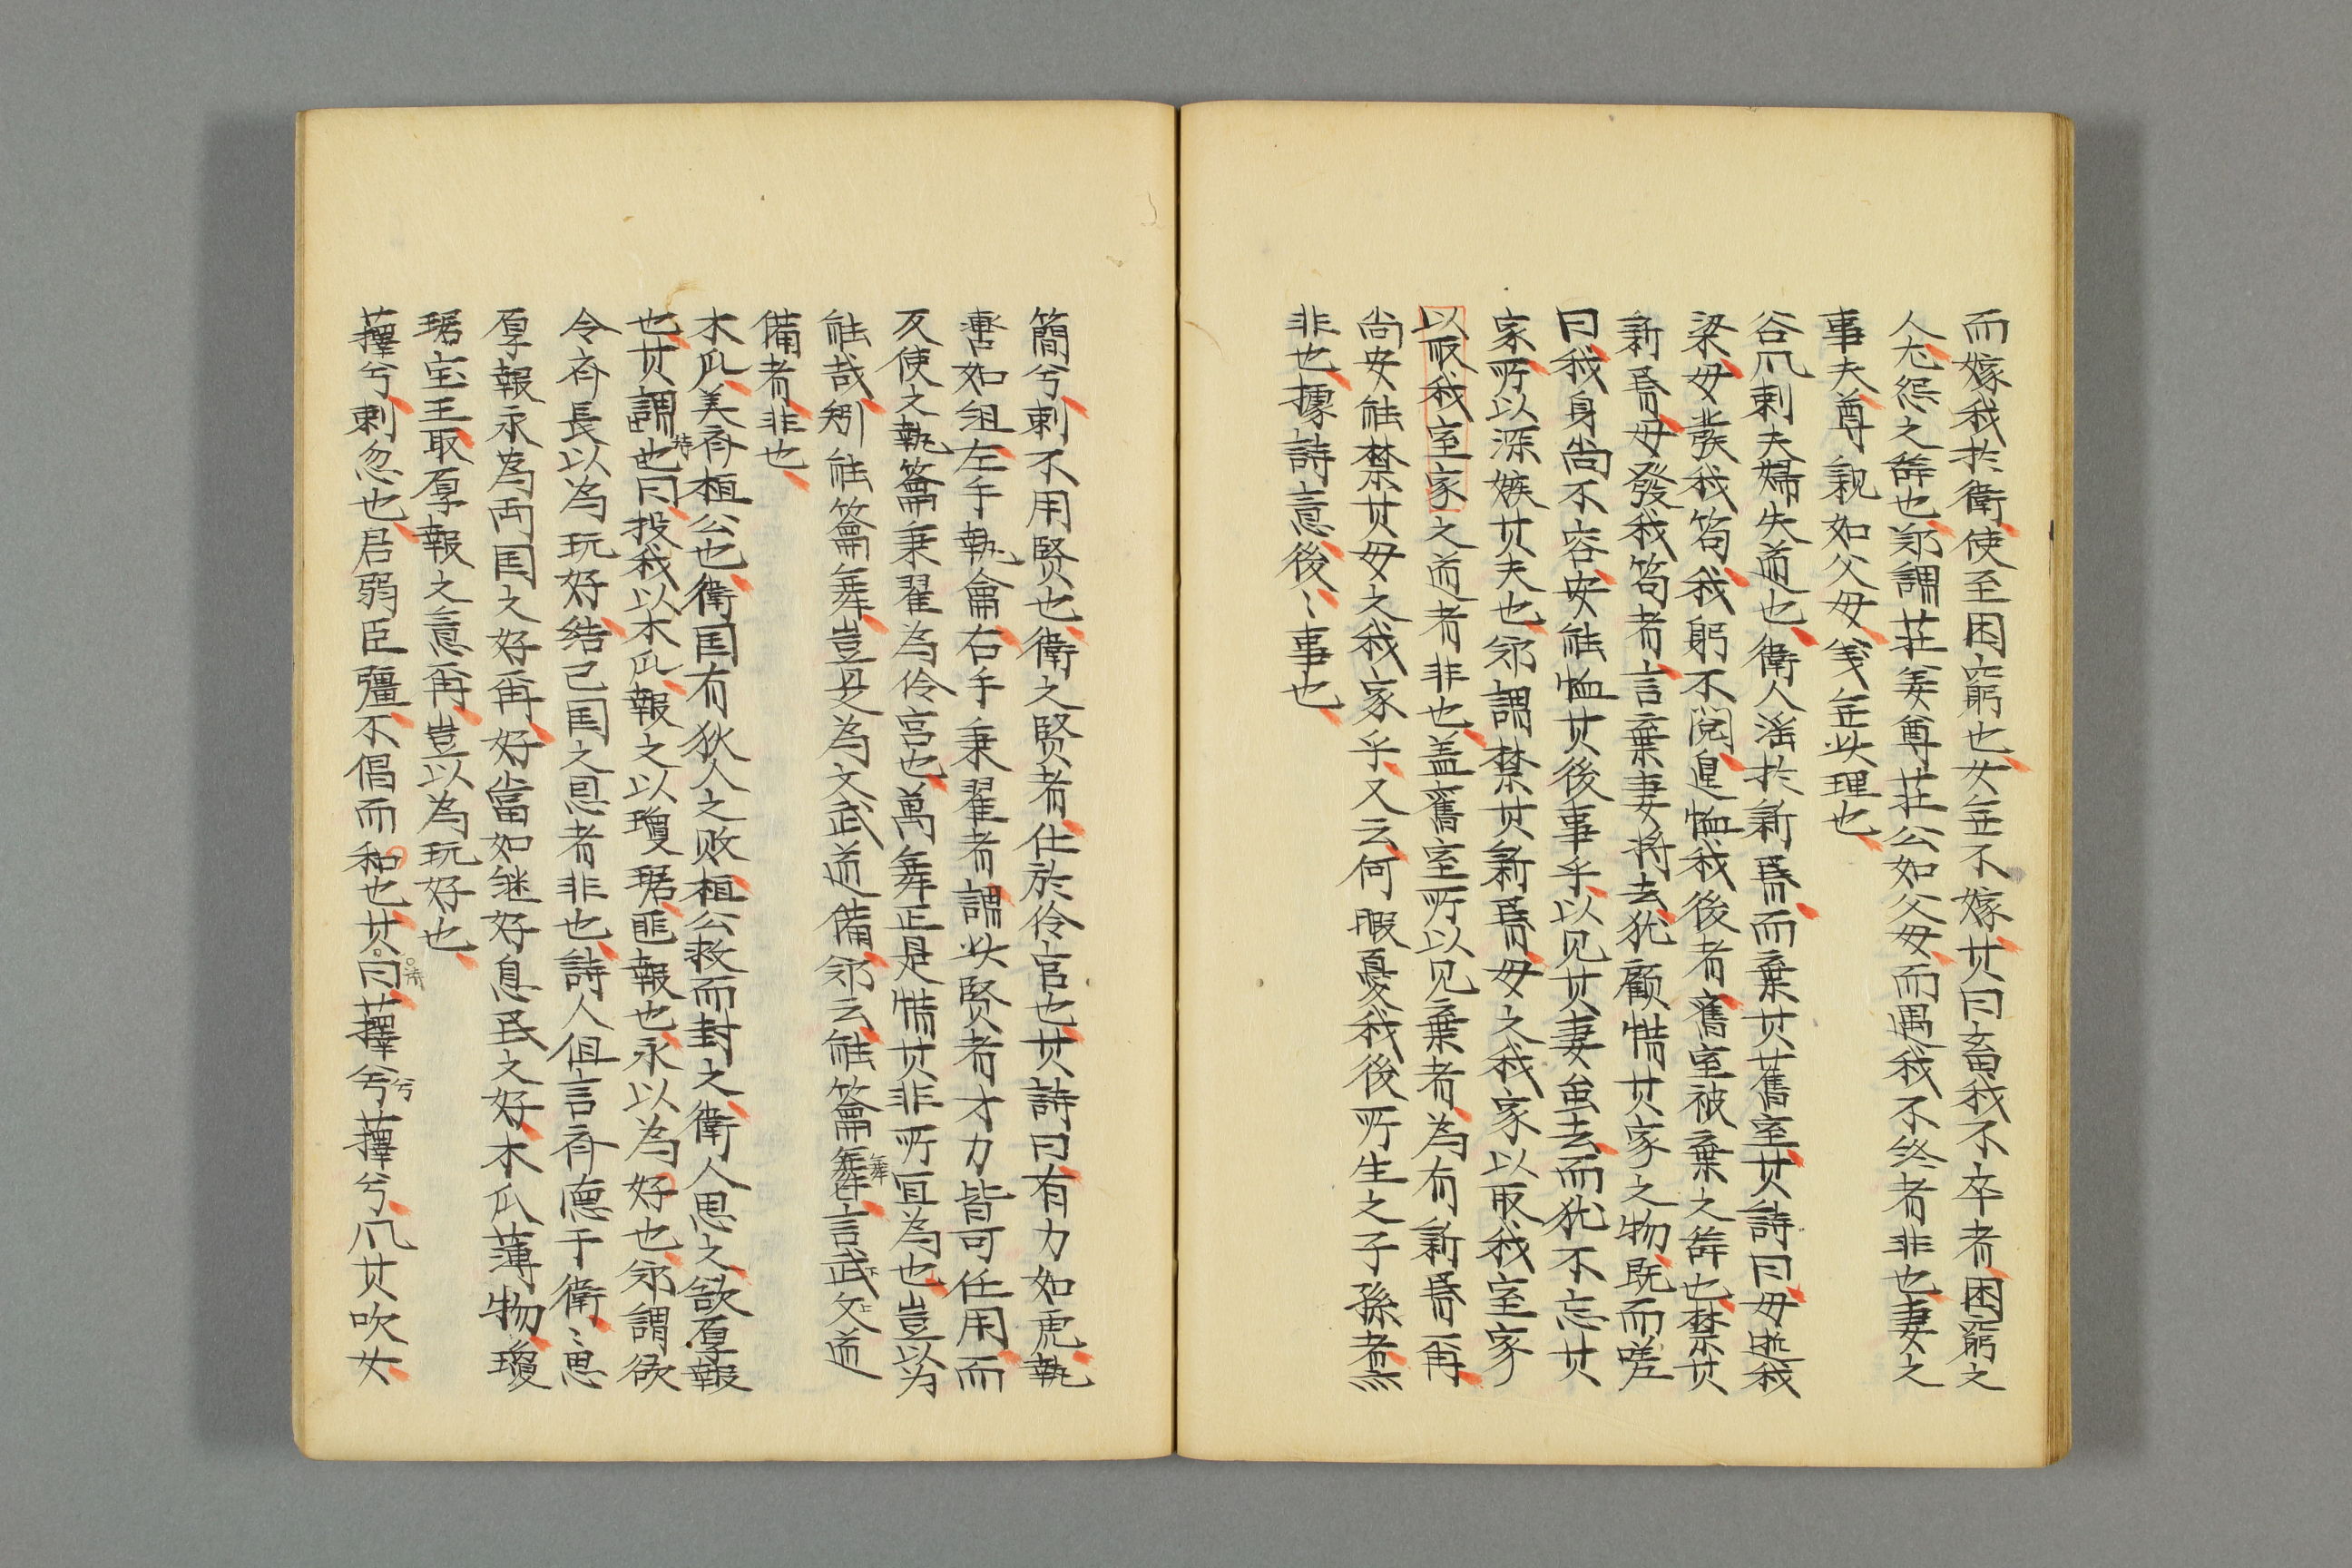 而嫁我於衛使至困窮也女無不嫁其曰畜我不卒者困窮之
人尤怨之辭也鄭謂莊姜尊莊公如父母而遇我不終者非也妻之
事夫尊親如父母義無此理也
谷風刺夫婦失道也衛人滛於新昏而棄其舊室其詩曰毋逝我
梁毋發我笱我躬不閱遑恤我後者舊室被棄之辭也禁其
新昏毋發我笱者言棄妻將去猶顧惜其家之物既而嗟
曰我身尚不容安能恤其後事乎以见其妻虽去而猶不忘其
家所以深嫉其夫也鄭謂禁其新昏毋之我家以取我室家
以取我室家之道者非也盖舊室所以见棄者為有新昏再
尚安能禁其毋之我家乎又云何暇憂我後所生之子孫者
非也據詩意後〻事也
簡兮刺不用賢也衛之賢者仕於伶官也其詩曰有力如虎執
轡如組左手執籥右手秉翟者謂此賢者才力皆可任用而
反使之執籥秉翟為伶官也萬舞正是惜其非所宜為也豈以为
能哉矧能籥舞豈足為文武道備鄭云能籥舞言武文道
備者非也
木瓜美齊桓公也衛国有狄人之败桓公救而封之衛人思之欲厚報
也其謂也曰投我以木瓜報之以瓊琚匪報也永以為好也鄭謂欲
令齊長以為玩好結己国之恩者非也詩人但言齊德于衛〻思
厚報永為兩国之好再好當如继好息民之好木瓜薄物瓊
琚宝玉取厚報之意再豈以為玩好也
蘀兮刺忽也君弱臣彊不倡而和也其曰蘀兮蘀兮風其吹女